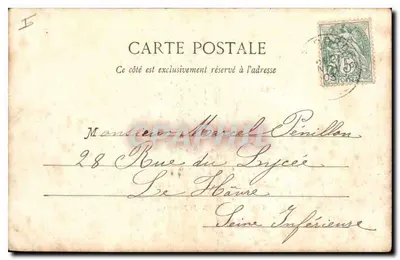 CARTE POSTALE
Ce côté est exclusivement réservé à l'adresse
Monsieur Marcel Pénillon
28 Rue du Lycée
Le Hâvre
Seine Inférieuse